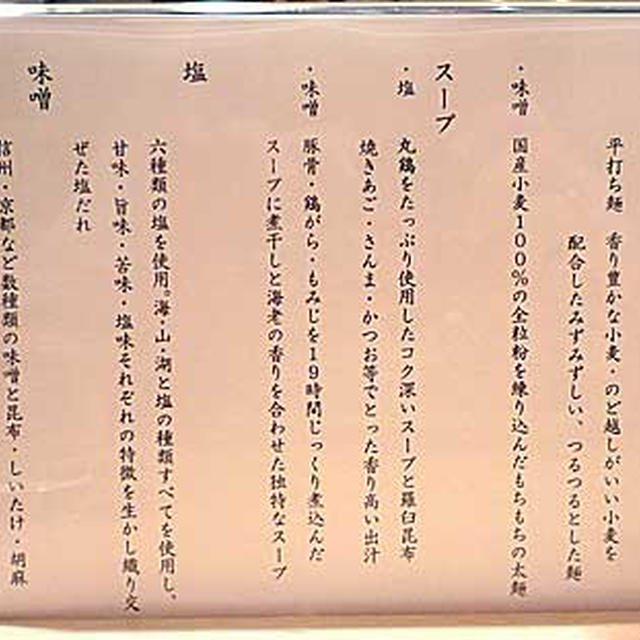 平打ち麺 香り豊かな小麦・のど越しがいい小麦を
配合したみずみずしい、つるつるとした麺
・味噌 国産小麦100%の全粒粉を練り込んだもちもちの太麺
スープ
・塩 丸鶏をたっぷり使用したコク深いスープと羅臼昆布
焼きあご・さんま・かつお等でとった香り高い出汁
・味噌 豚骨・鶏がら・もみじを19時間じっくり煮込んだ
スープに煮干しと海老の香りを合わせた独特なスープ
塩
六種類の塩を使用。海・山・湖と塩の種類すべてを使用し、
甘味・旨味・苦味・塩味それぞれの特徴を生かし織り交
ぜた塩だれ
味噌
信州・京都など数種類の味噌と昆布・しいたけ・胡麻